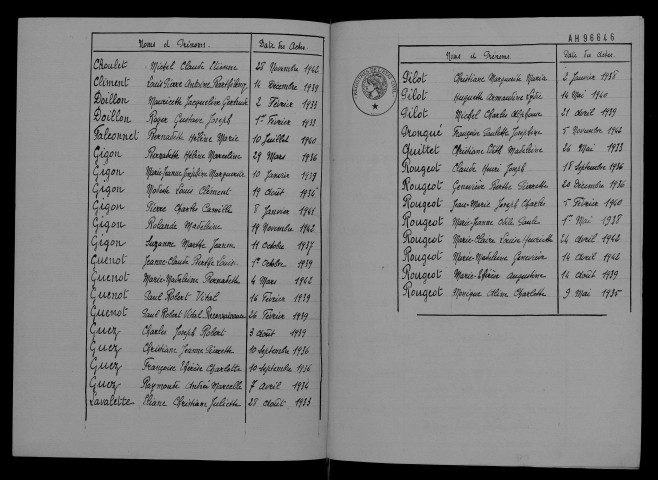 Noms et Prénoms. Date des Actes.
Choulet Michel Claude Etienne 28 Novembre 1942
Climent Louis Pierre Antoine 14 Décembre 1939
Doillon Mauricette Jacqueline Gertrude 2 Février 1933
Doillon Roger Gustave Joseph 1er Février 1933
Falconnet Bernadette Hélène Marie 10 Juillet 1940
Gigon Bernadette Hélène Marceline 29 Mars 1936
Gigon Marie-Jeanne Joséphine Marguerite 10 Janvier 1939
Gigon Modeste Louis Clément 19 Août 1934
Gigon Pierre Charles Camille 8 Janvier 1941
Gigon Rolande Madeleine 19 Novembre 1942
Gigon Suzanne Marthe Jeanne 11 Octobre 1937
Guenot Jeanne-Claude Berthe Louise 1er Octobre 1939
Guenot Marie-Madeleine Bernadette 4 Mars 1942
Guenot Paul Robert Vital 16 Février 1939
Guenot Paul Robert Vital Reconnaissance 26 Février 1939
Guez Charles Joseph Robert 3 Août 1939
Guez Christiane Jeanne Pierrette 10 Septembre 1936
Guez Françoise Thérèse Charlotte 10 Septembre 1936
Guez Raymonde Andrée Marcelle 7 Avril 1934
Lavalette Eliane Christiane Juliette 28 Août 1933
AH96646
Noms et Prénoms. Date des Actes.
Pilot Christiane Marguerite Marie 2 Janvier 1938
Pilot Huguette Armandine 14 Mai 1940
Pilot Michel Charles Alphonse 21 Avril 1939
Pronqué Françoise Paulette Joséphine 5 Novembre 1942
Quittet Christiane Edith Madeleine 26 Mai 1933
Rougeot Claude Henri Joseph 18 Septembre 1936
Rougeot Geneviève Berthe Pierrette 20 Décembre 1936
Rougeot Jean-Marie Joseph Charles 5 Février 1940
Rougeot Marie-Jeanne Odile Paule 1er Mai 1938
Rougeot Marie-Claire Louise Henriette 14 Avril 1942
Rougeot Marie-Madeleine Geneviève 14 Avril 1942
Rougeot Marie-Thérèse Augustine 14 Août 1939
Rougeot Monique Aline Charlotte 9 Mai 1935